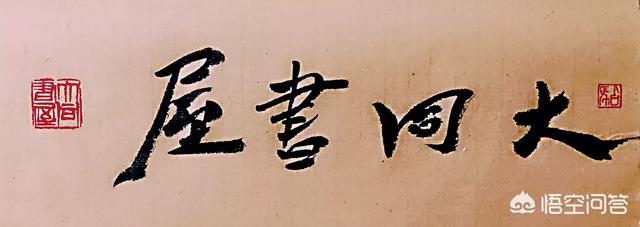 大同書屋
悟空问答